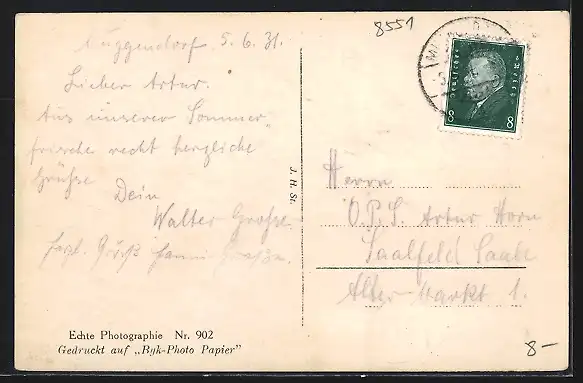 8551
Muggendorf 5.6.31.
Lieber Artur.
Aus unserer Sommer
frische recht herzliche
Grüsse
Dein
Walter Grosse
herzl. Grüße Fanni
J. H. St.
Deutsches Reich
8 8
Herrn
O.P.S. Artur Horn
Saalfeld Saale
Alter-Markt 1.
Echte Photographie Nr. 902
Gedruckt auf „Byk-Photo Papier"
8-